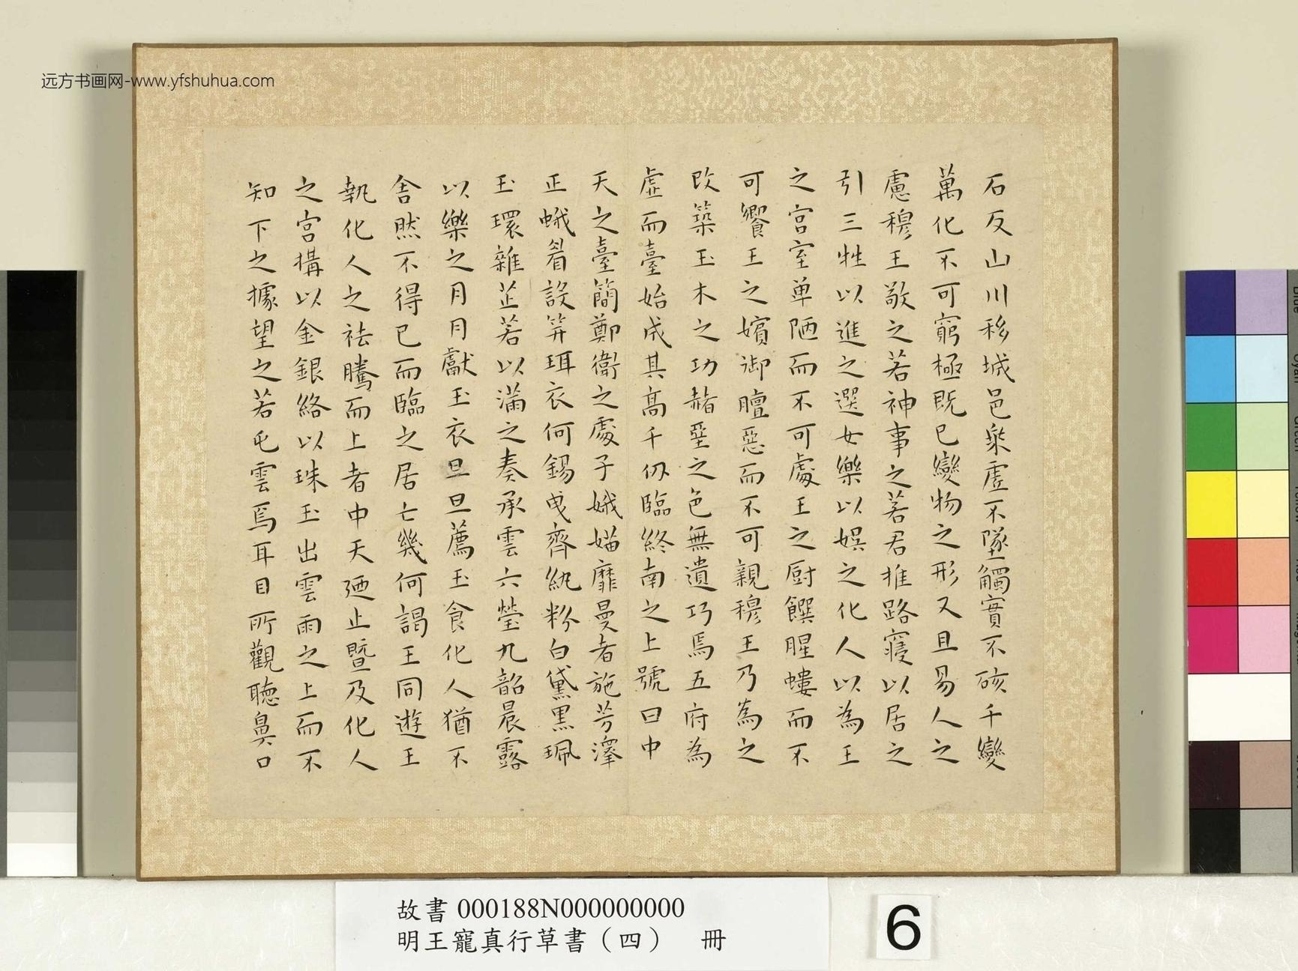 远方书画网-www.yfshuhua.com
石反山川移城邑乘虛不墜觸實不硋千變
萬化不可窮極既已變物之形又且易人之
慮穆王敬之若神事之若君推路寢以居之
引三牲以進之選女樂以娛之化人以為王
之宮室卑陋而不可處王之厨饌腥螻而不
可饗王之嬪御膻惡而不可親穆王乃為之
改築玉木之功赭堊之色無遺巧焉五府為
虛而臺始成其高千仞臨終南之上號曰中
天之臺簡鄭衛之處子娥媌靡曼者施芳澤
正蛾眉設笄珥衣何錫曳齊紈粉白黛黑珮
玉環雜芷若以滿之奏承雲六瑩九韶晨露
以樂之月月獻玉衣旦旦薦玉食化人猶不
舍然不得已而臨之居亡幾何謁王同遊王
執化人之祛騰而上者中天迺止暨及化人
之宮構以金銀絡以珠玉出雲雨之上而不
知下之據望之若屯雲焉耳目所觀聽鼻口
故書 000188N000000000
明王寵真行草書（四） 冊
6